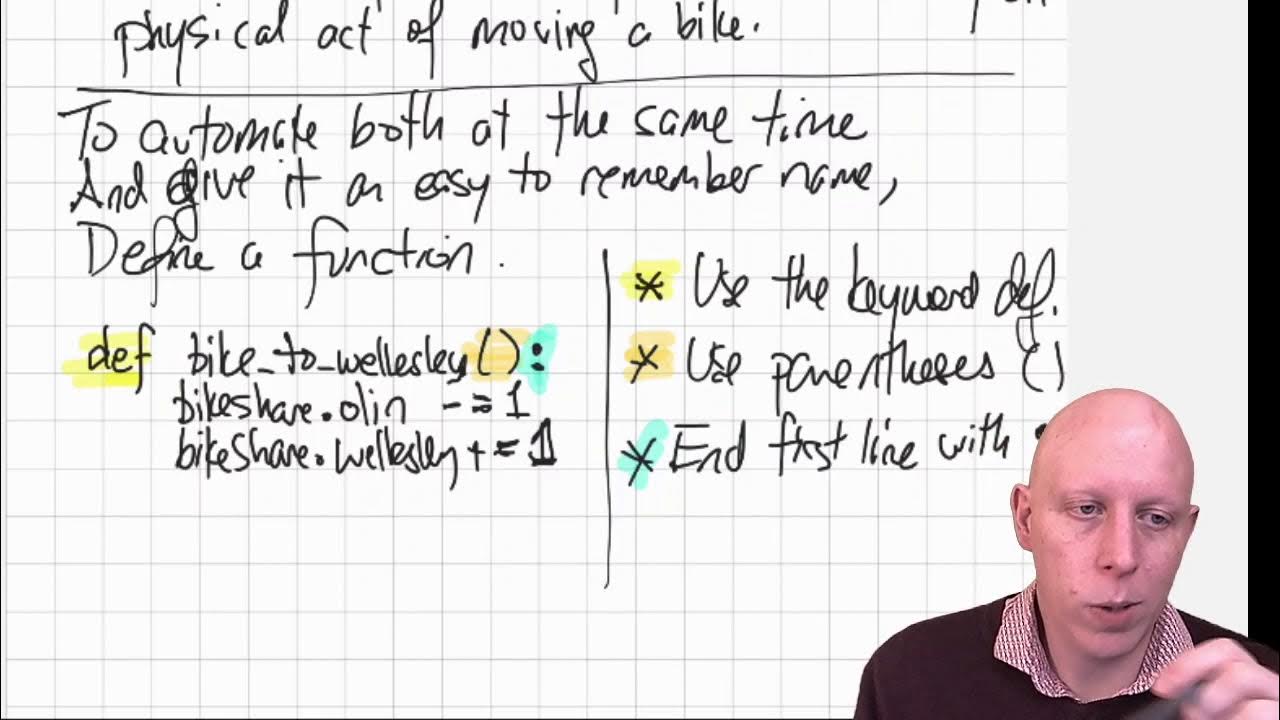 physical act of moving a bike.
To automate both at the same time
And give it an easy to remember name,
Define a function.
def bike_to_wellesley():
bikeshare.olin -= 1
bikeshare.wellesley += 1
* Use the keyword def.
* Use parentheses ()
* End first line with :